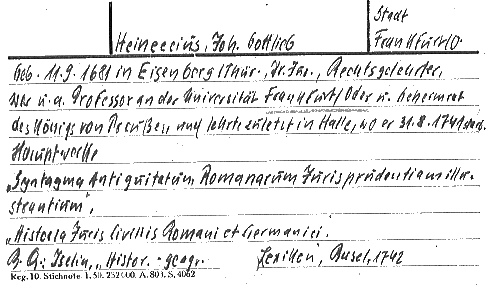 Heineccius, Joh. Gottlieb
Stadt
Frankfurt/O.
Geb. 11.9.1681 in Eisenberg/Thür., Dr. Jur., Rechtsgelehrter,
War u.a. Professor an der Universität Frankfurt/Oder u. Geheimrat
des Königs von Preußen, und lehrte zuletzt in Halle, wo er 31.8.1741 starb.
Hauptwerke
„Syntagma Antiquitatum Romanarum Jurisprudentiam illu-
strantium",
„Historia Juris Civilis Romani et Germanici.
B. Q.: Iselin, „Histor.-geogr. Lexikon", Basel, 1742
Reg. 10. Stichnote. 1. 50. 252 000. A. 80 l. S. 4062